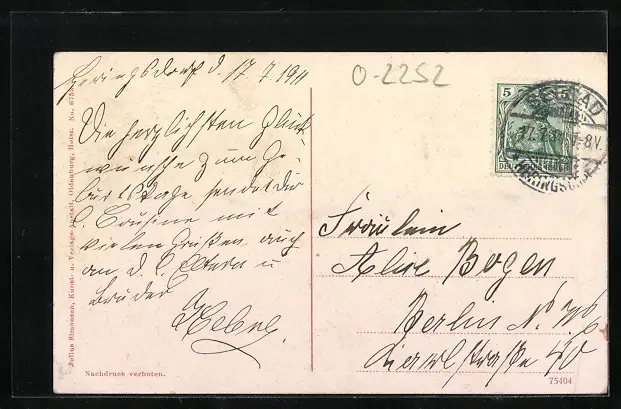 Heringsdorf d. 17.7.1911
O-2252
5
SEEBAD
17.7.11 7-8V.
HERINGSDORF
Die herzlichsten Glück
wünsche zum Ge-
burtstage sendet Dir
l. Cousine mit
vielen Grüßen auch
an d. l. Eltern u
Bruder
Fräulein
Alice Bogen
Berlin N.W.
straße 40
Julius Simonsen, Kunst- u. Verlags-Anstalt, Oldenburg, Holst. No.
Nachdruck verboten.
75404